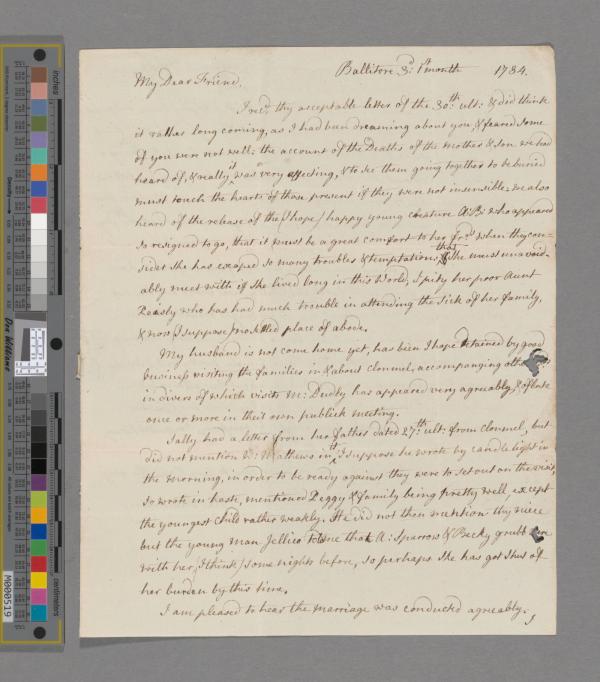 Ballitore 3d. 1st month 1784.
My Dear Friend,
I recd. thy acceptable letter of the 30th. ult: & did think
it rather long coming, as I had been dreaming about you, & feared some
of you were not well: the account of the Deaths of the mother & Son we had
heard of, & really it was very affecting, & to see them going together to be buried
must touch the hearts of those present if they were not insensible. we also
heard of the release of the (I hope) happy young creature A:B: who appeared
so resigned to go, that it must be a great comfort to her frds. when they con-
sider she has escaped so many troubles & temptations, that she must unavoid-
ably meet with if she lived long in this World, I pity her poor Aunt
Paisly who has had much trouble in attending the Sick of her family,
& now I suppose no settled place of abode.
My husband is not come home yet, has been I hope detained by good
business visiting the families in & about clonmel, accompanying
in divers of which visits M: Dudly has appeared very agreeably, & of late
once or more in their own publick meeting.
Sally had a letter from her father dated 27th. ult: from Clonmel, but
did not mention W: Mathews in it, I suppose he wrote by candle light in
the morning, in order to be ready against they were to set out on the visit,
so wrote in haste, mentioned Peggy & family being pretty well, except
the youngest child rather weakly. He did not then mention thy niece
but the young man Jellico told me that A: Sparrow & Becky grubb
with her, (I think) some nights before, so perhaps she has got shut of
her burden by this time.
I am pleased to hear the marriage was conducted agreeably.
inches
centimeters
Don Williams
M000519